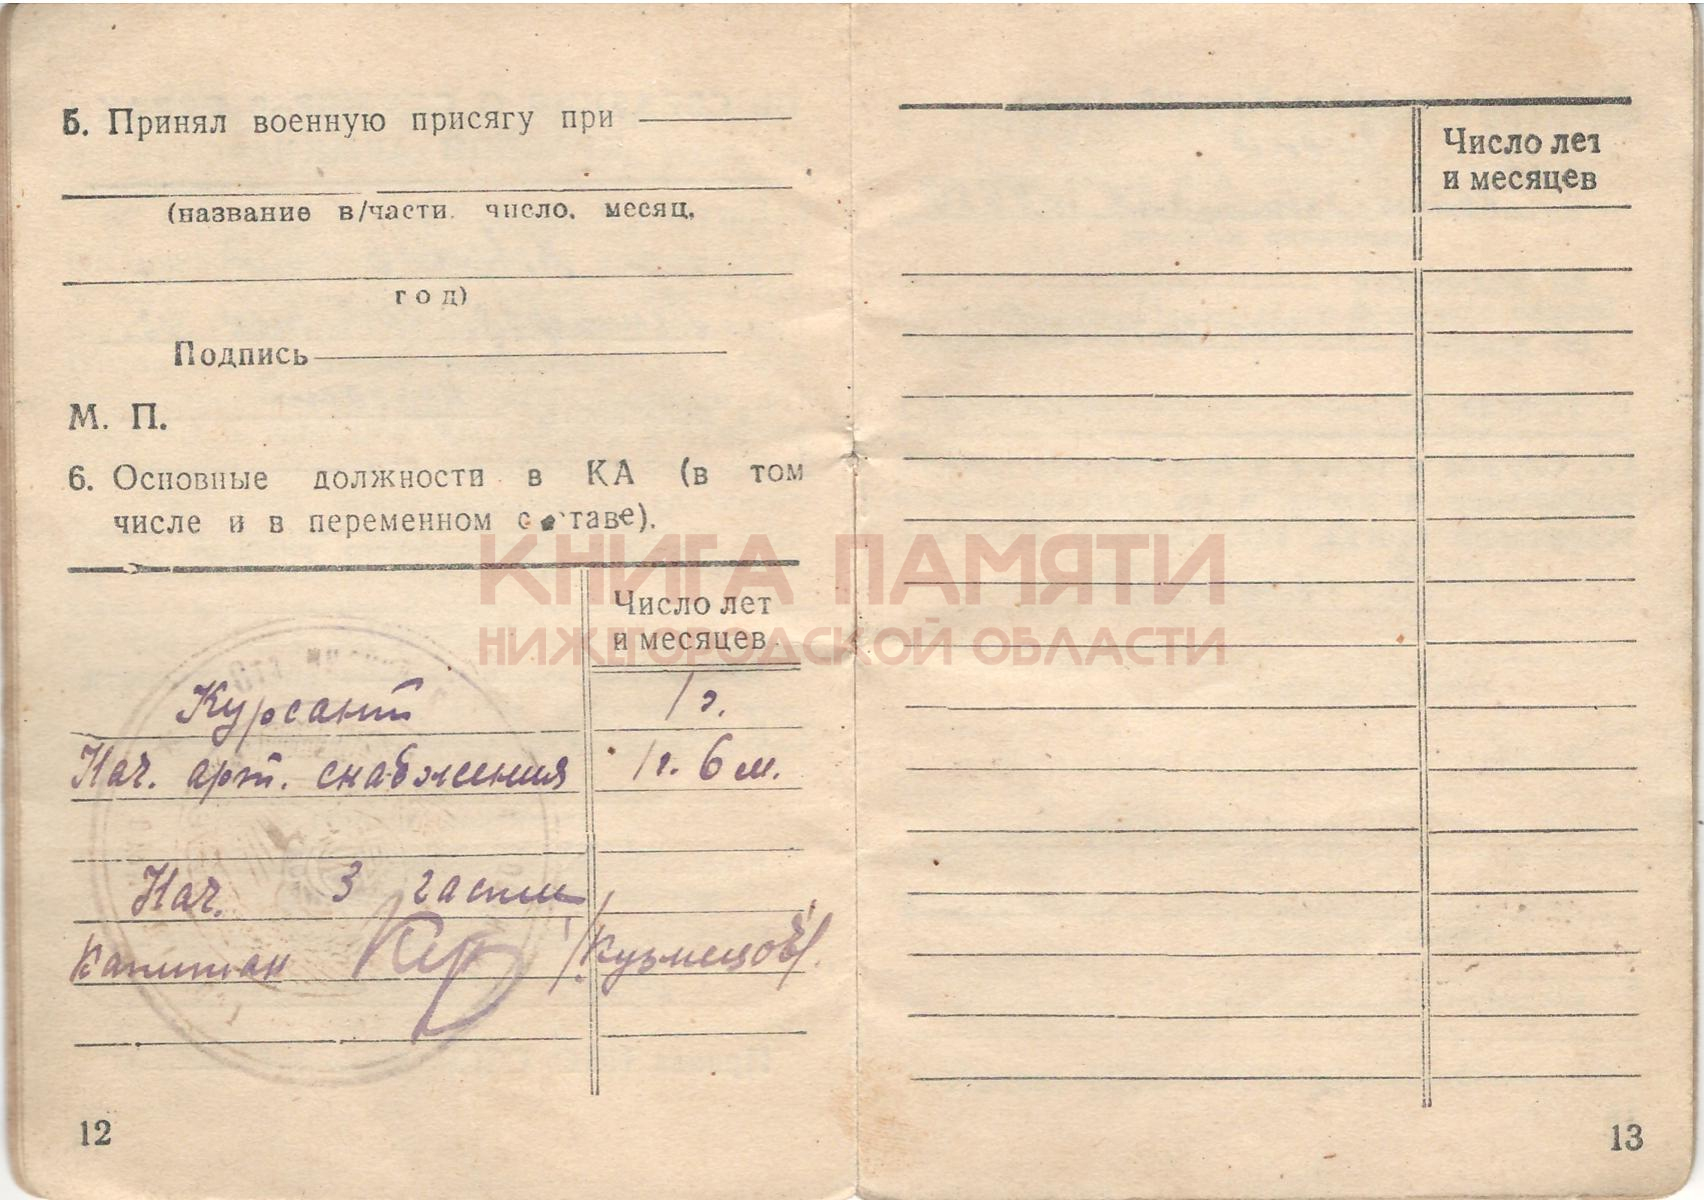 Б. Принял военную присягу при
(название в/части, число, месяц,
год)
Подпись
М. П.
6. Основные должности в КА (в том
числе и в переменном составе).
Число лет
и месяцев
Курсант 1 г.
Нач. арт. снабжения 1 г. 6 м.
Нач. 3 части
Капитан /Кузнецов/.
12
Число лет
и месяцев
13
КНИГА ПАМЯТИ
НИЖЕГОРОДСКОЙ ОБЛАСТИ